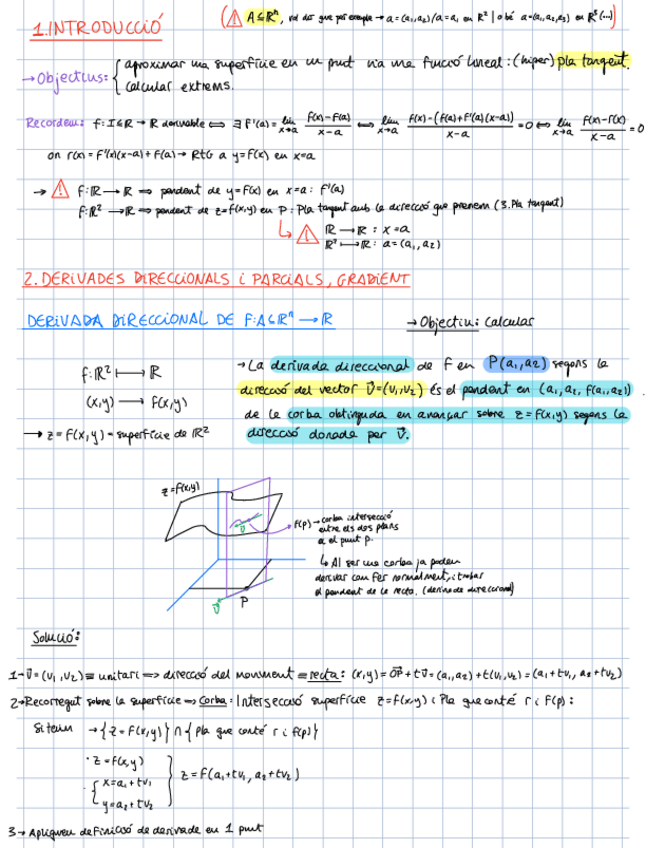 (⚠ A⊆ℝⁿ, vol dir que per exemple → a=(a₁,a₂)/a=a₁ en ℝ² | o bé a=(a₁,a₂,a₃) en ℝ³(...))
1.INTRODUCCIÓ
→Objectius: { aproximar una superfície en un punt via una funció lineal: (hiper) pla tangent.
calcular extrems.
Recordem: f: I⊆ℝ → ℝ derivable ⟺ ∃ f'(a) = lim x→a (f(x)-f(a))/(x-a) ⟺ lim x→a (f(x)-(f(a)+f'(a)(x-a)))/(x-a) = 0 ⟺ lim x→a (f(x)-r(x))/(x-a) = 0
on r(x) = f'(x)(x-a)+f(a) → RTG a y=f(x) en x=a
→ ⚠ f: ℝ → ℝ ⟹ pendent de y=f(x) en x=a: f'(a)
f: ℝ² → ℝ ⟹ pendent de z=f(x,y) en P: Pla tangent amb la direcció que prenem (3. Pla tangent)
↳ ⚠ ℝ → ℝ : x=a
ℝ² ↦ ℝ : a=(a₁,a₂)
2. DERIVADES DIRECCIONALS i PARCIALS, GRADIENT
DERIVADA DIRECCIONAL DE f: A⊆ℝⁿ → ℝ
→ Objectiu: calcular
f: ℝ² ↦ ℝ
(x,y) → f(x,y)
→ z=f(x,y) = superfície de ℝ²
→ La derivada direccional de f en P(a₁,a₂) segons la
direcció del vector v⃗=(v₁,v₂) és el pendent en (a₁,a₂,f(a₁,a₂))
de la corba obtinguda en avançar sobre z=f(x,y) segons la
direcció donada per v⃗.
z=f(x,y)
v⃗
f(p) → corba intersecció
entre els dos plans
a el punt p.
↳ Al ser una corba ja podem
derivar com fer normalment, i trobar
el pendent de la recta. (derivada direccional)
v⃗
P
Solució:
1→ v⃗=(v₁,v₂) ≡ unitari ⟹ direcció del moviment ≡ recta: (x,y) = OP⃗ + tv⃗ = (a₁,a₂)+t(v₁,v₂) = (a₁+tv₁, a₂+tv₂)
2→ Recorregut sobre la superfície ⟹ Corba: Intersecció superfície z=f(x,y) i Pla que conté r i f(p):
Si tenim → {z=f(x,y)} ∩ {pla que conté r i f(p)}
· z=f(x,y)
· { x=a₁+tv₁
y=a₂+tv₂ } z=f(a₁+tv₁, a₂+tv₂)
3→ Apliquem definició de derivada en 1 punt